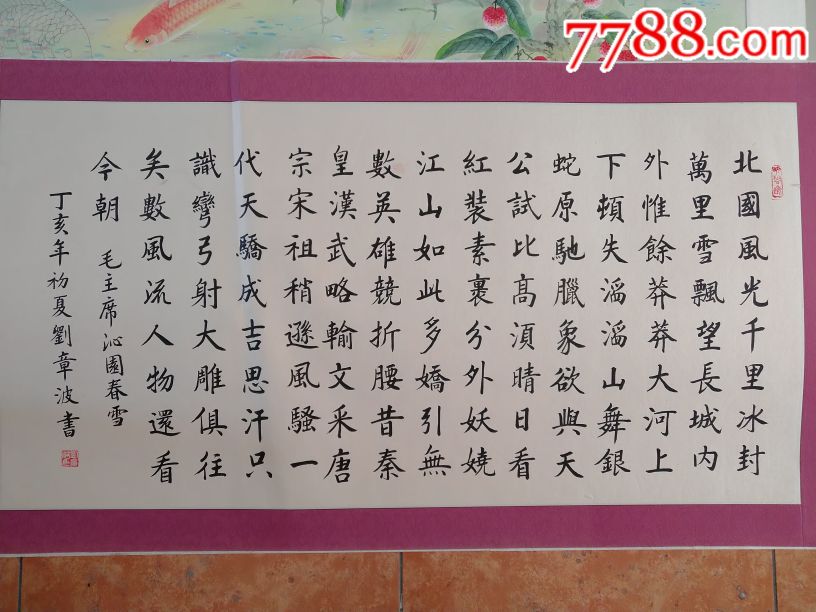 7788.com
北國風光千里冰封
萬里雪飄望長城内
外惟餘莽莽大河上
下頓失滔滔山舞銀
蛇原馳臘象欲與天
公試比高須晴日看
紅裝素裹分外妖嬈
江山如此多嬌引無
數英雄競折腰昔秦
皇漢武略輸文采唐
宗宋祖稍遜風騷一
代天驕成吉思汗只
識彎弓射大雕俱往
矣數風流人物還看
今朝 毛主席沁園春雪
丁亥年初夏劉章波書